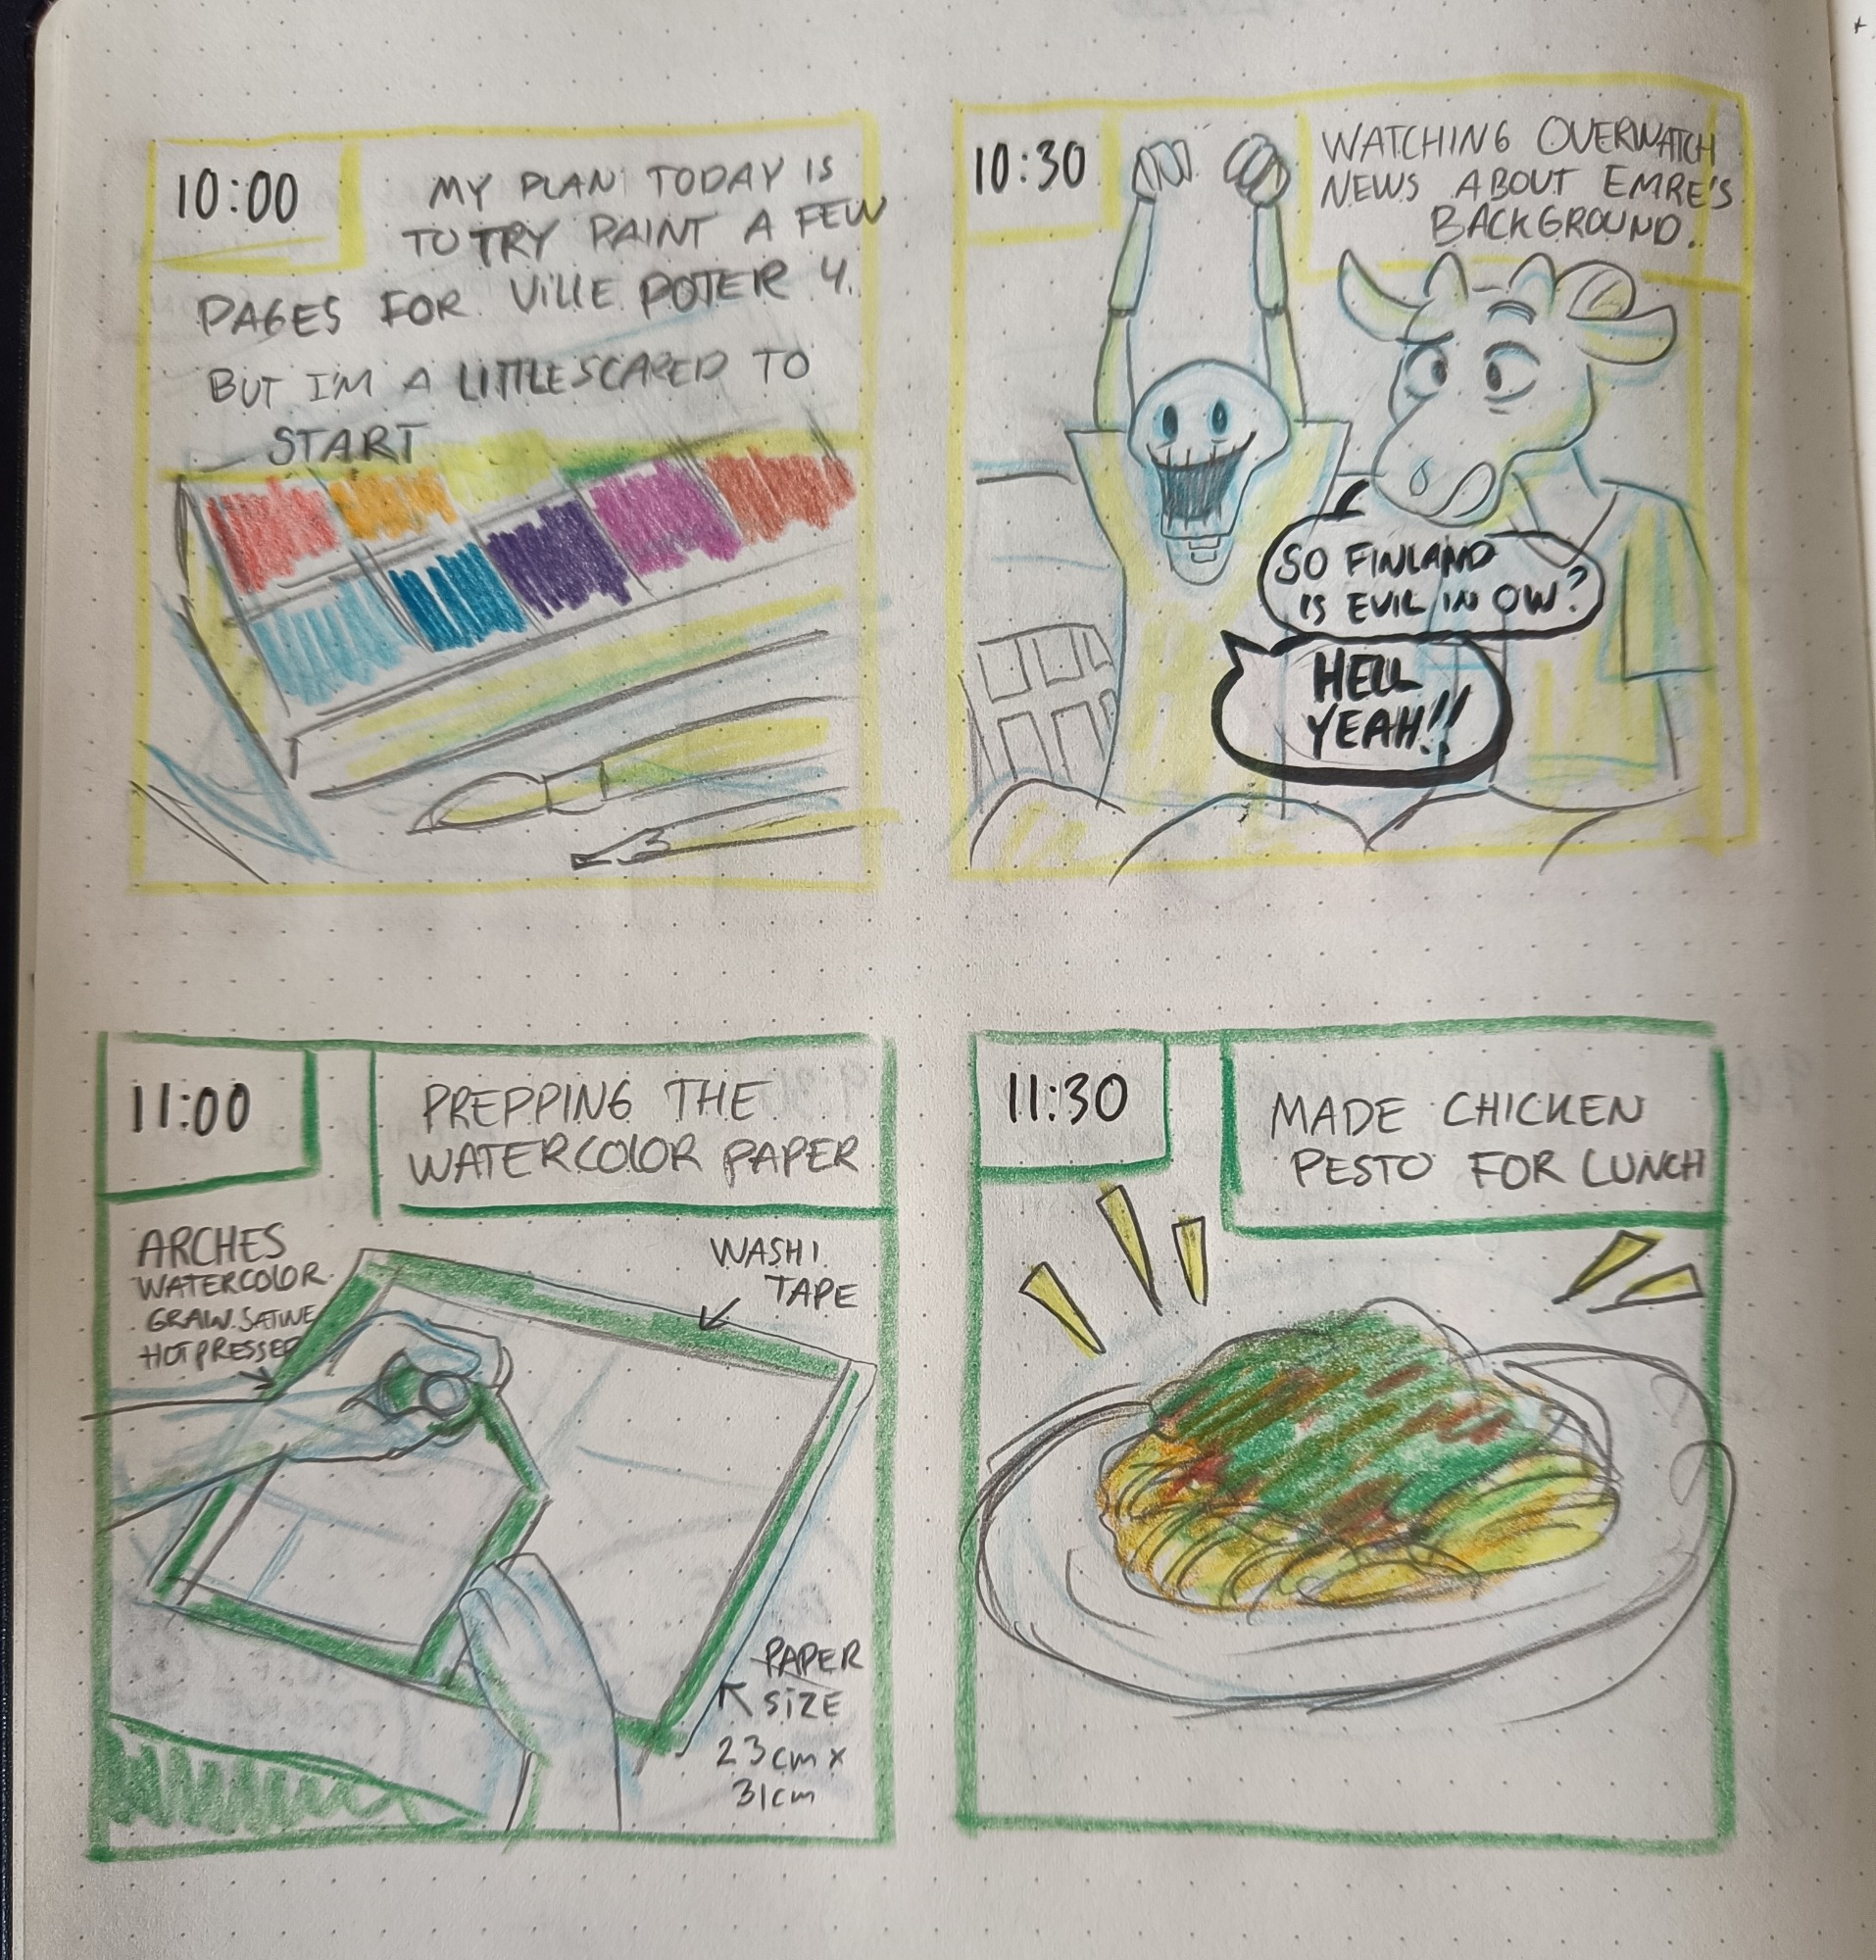 10:00
MY PLAN TODAY IS
TO TRY PAINT A FEW
PAGES FOR VILLE POTER 4.
BUT I'M A LITTLE SCARED TO
START
10:30
WATCHING OVERWATCH
NEWS ABOUT EMRE'S
BACKGROUND.
SO FINLAND
IS EVIL IN OW?
HELL
YEAH!!
11:00
PREPPING THE
WATERCOLOR PAPER
ARCHES
WATERCOLOR
GRAIN SATINE
HOT PRESSED
WASHI
TAPE
PAPER
SIZE
23cm x
31cm
11:30
MADE CHICKEN
PESTO FOR LUNCH